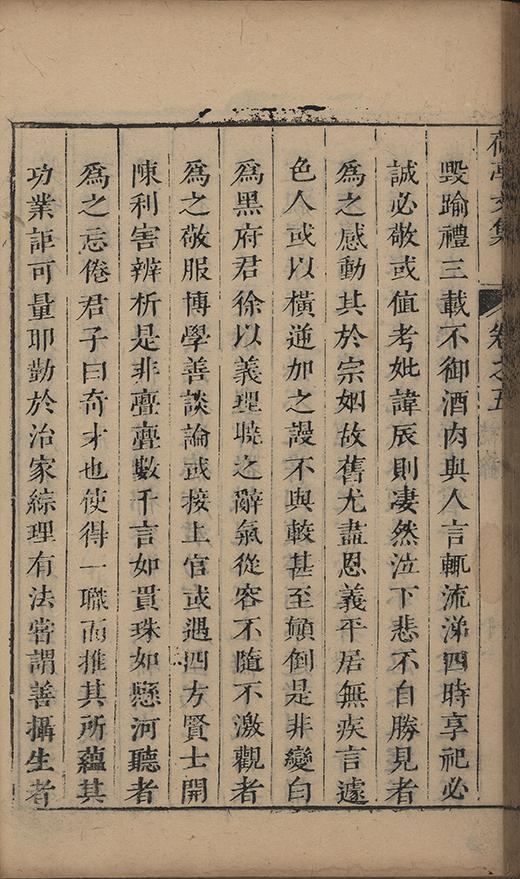 文集
卷之五
毀踰禮三載不御酒肉與人言輒流涕四時享祀必
誠必敬或值考妣諱辰則凄然泣下悲不自勝見者
爲之感動其於宗姻故舊尤盡恩義平居無疾言遽
色人或以橫逆加之謾不與較甚至顚倒是非變白
爲黑府君徐以義理曉之辭氣從容不隨不激觀者
爲之敬服博學善談論或接上官或遇四方賢士開
陳利害辨析是非亹亹數千言如貫珠如懸河聽者
爲之忘倦君子曰奇才也使得一職而推其所蘊其
功業詎可量耶勤於治家綜理有法嘗謂善攝生者